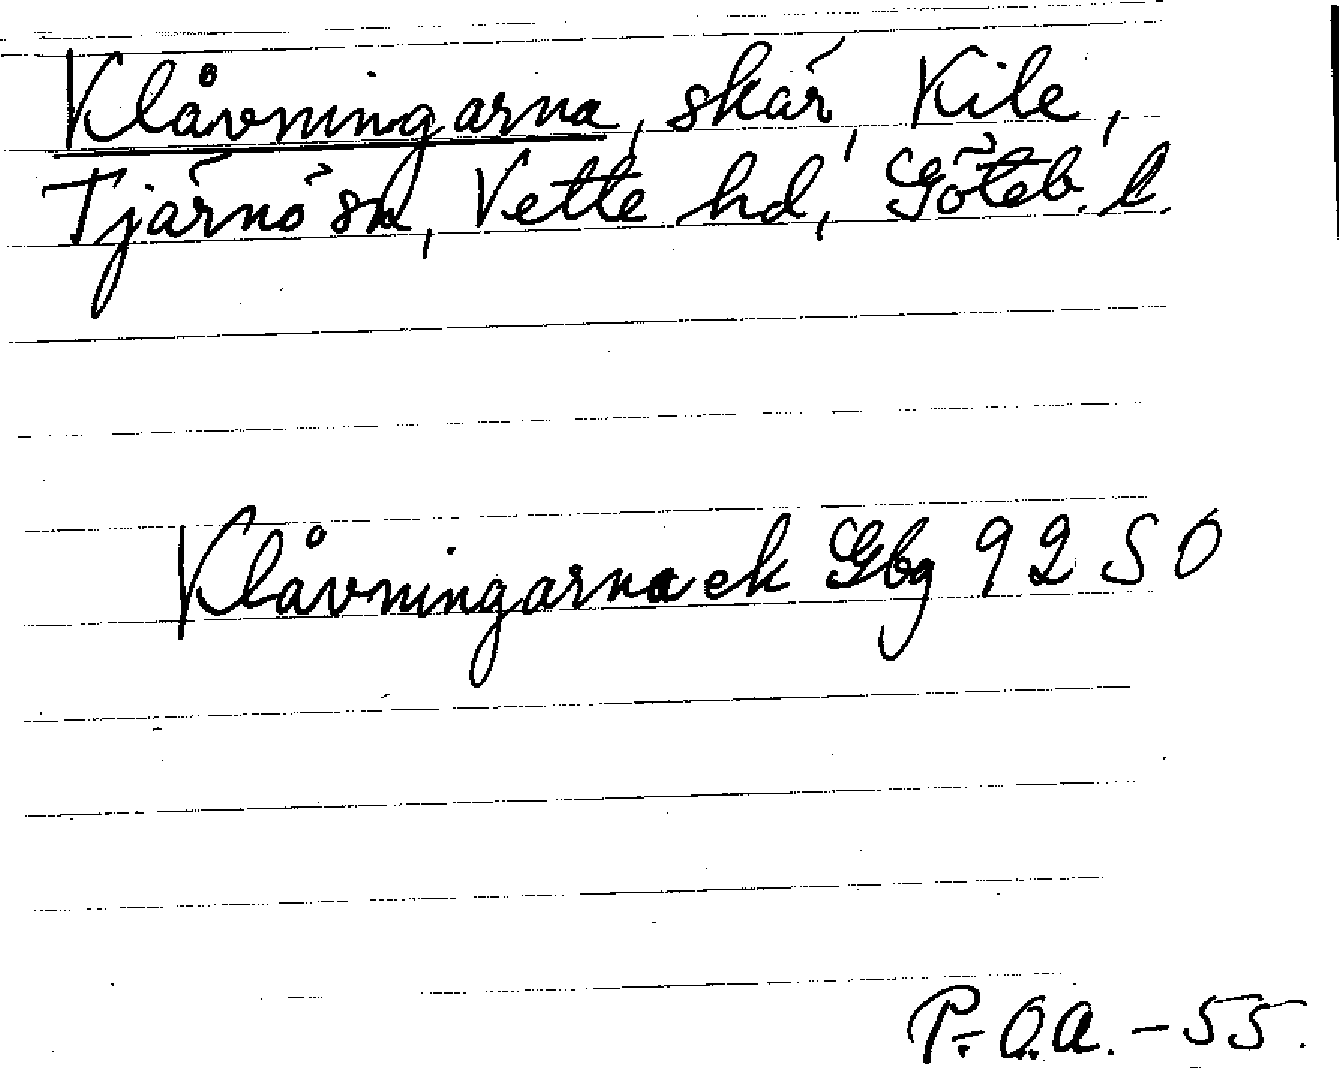 Klåvningarna, skär, Kile,
Tjärnö sn, Vette hd, Göteb. l.
Klåvningarna ek Gbg 92 SO
P.O.A. - 55.